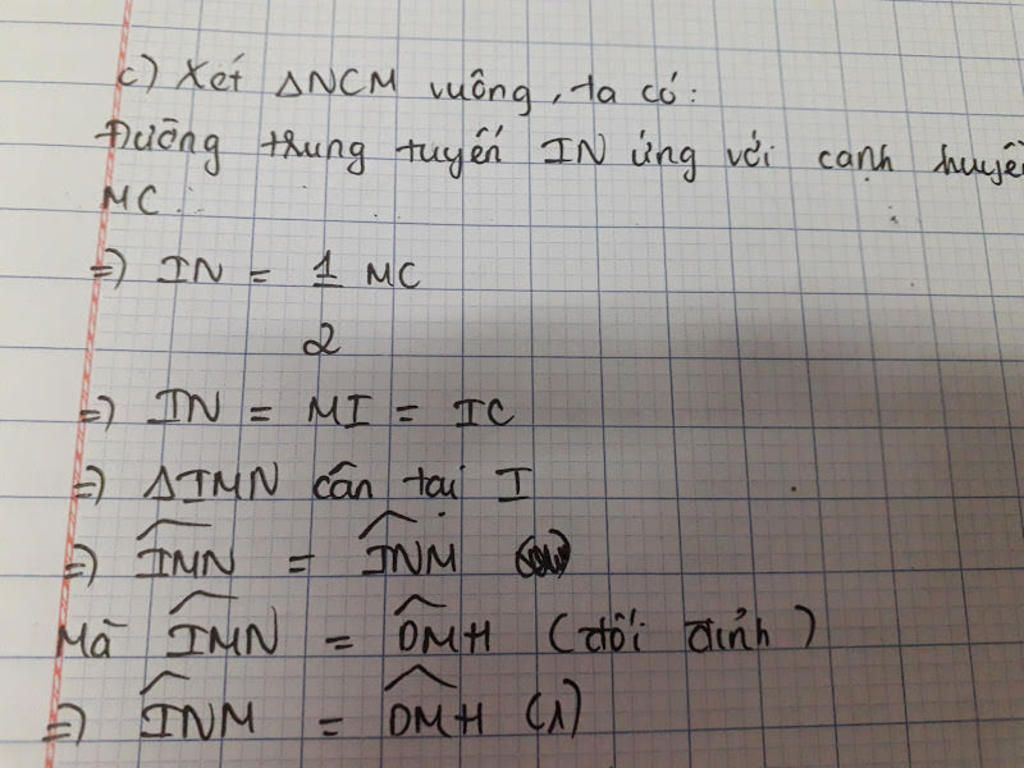 c) Xét ΔNCM vuông, ta có:
Đường trung tuyến IN ứng với cạnh huyề
MC.
=) IN = 1/2 MC
=) IN = MI = IC
=) ΔIMN cân tại I
=) \widehat{IMN} = \widehat{INM}
Mà \widehat{IMN} = \widehat{DMH} (đối đỉnh)
=) \widehat{INM} = \widehat{DMH} (1)